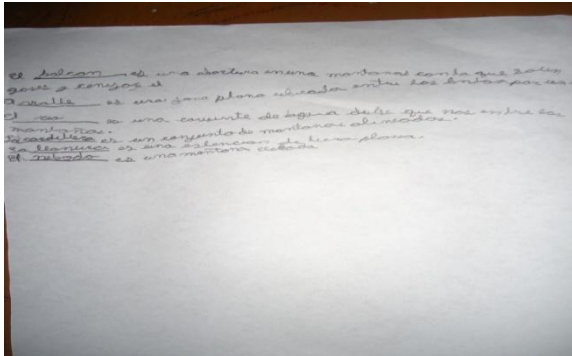 el balcan es una abertura en una montañas con la que salen
gases y
el valle es una zona plana ubicada entre las
El rio es una corriente de agua dulse que nas entre las
montañas.
La cordillera es un conjunto de montañas alineadas.
La llanura es una estencion de tierra plana.
El nebado es una montaña